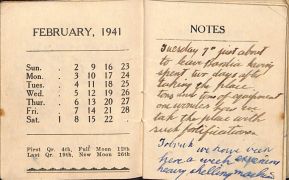 FEBRUARY, 1941
Sun. · 2 9 16 23
Mon. · 3 10 17 24
Tues. · 4 11 18 25
Wed. · 5 12 19 26
Thur. · 6 13 20 27
Fri. · 7 14 21 28
Sat. 1 8 15 22 ·
First Qr. 4th, Full Moon 12th
Last Qr. 18th, New Moon 26th
NOTES
Tuesday 7th just about
to leave Bardia having
spent two days after
taking the place
tons and tons of equipment
one wonders how we
took the place with
such fortifications
we have been
here a week
heavy shelling